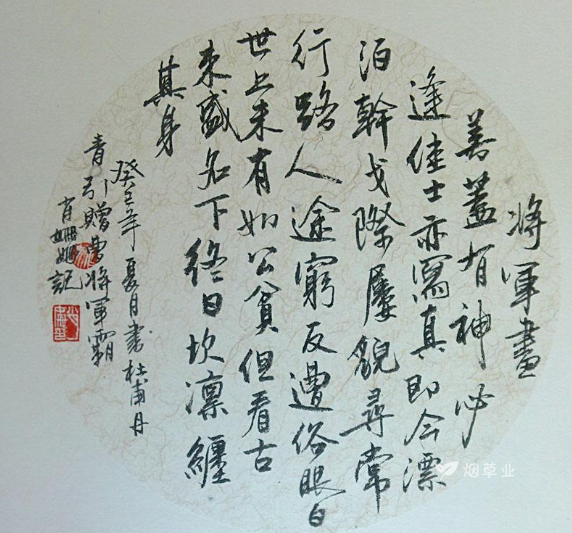 将军画
善盖有神必
逢佳士亦寫真即今漂
泊幹戈際屢貌尋常
行路人途窮反遭俗眼白
世上未有如公貧但看古
来盛名下終日坎凛纏
其身
癸巳年夏月書杜甫丹
青引贈曹将軍霸
烟草业